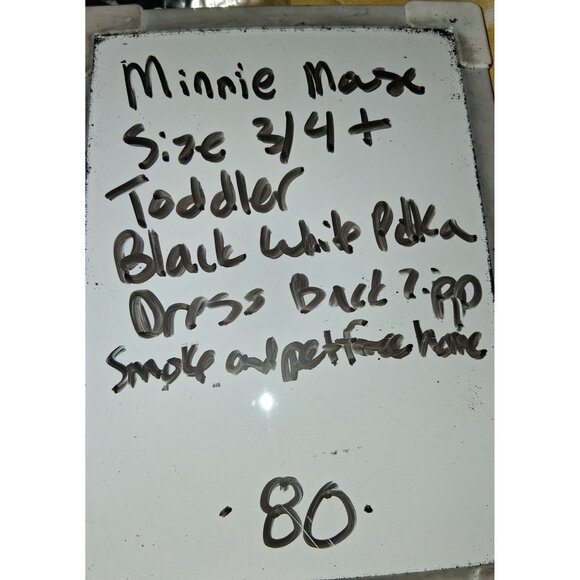 Minnie Mouse
Size 3/4 +
Toddler
Black White Polka
Dress Back Zipp
Smoke and pet free home
. 80 .